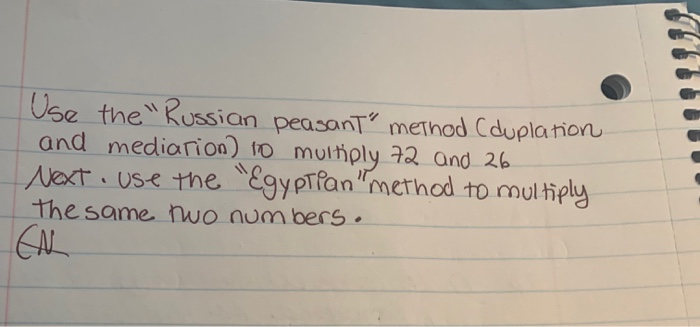 Use the "Russian peasant" method (duplation
and mediation) to multiply 72 and 26
Next. use the "Egyptian" method to multiply
the same two numbers.